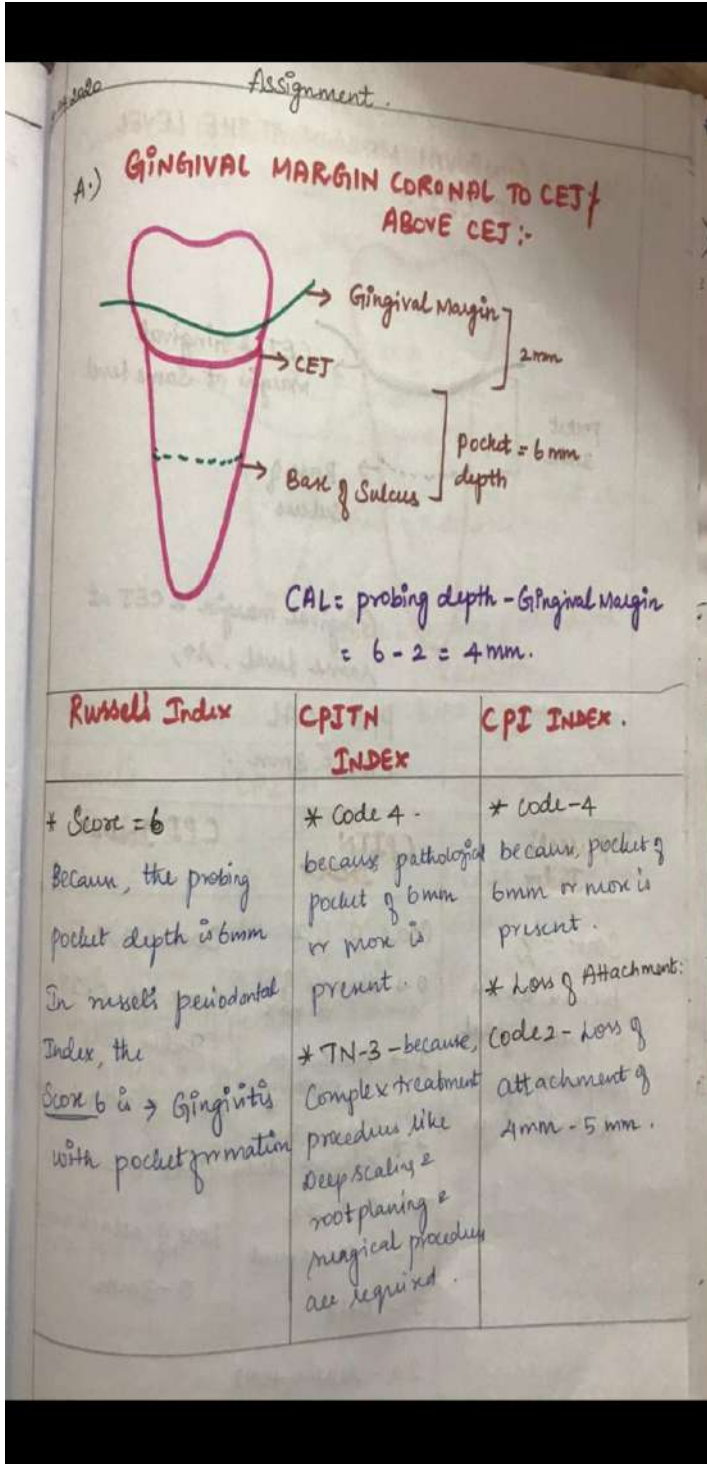 2020
Assignment.
A.) GINGIVAL MARGIN CORONAL TO CEJ/
ABOVE CEJ:-
Gingival Margin
2mm
CEJ
Pocket = 6mm
depth
Base of Sulcus
CAL = probing depth - Gingival Margin
= 6 - 2 = 4mm.
Russell's Index
* Score = 6
Because, the probing
pocket depth is 6mm
In russell's periodontal
Index, the
Score 6 is → Gingivitis
with pocket formation
CPITN
INDEX
* Code 4 -
because, pathological
pocket of 6mm
or more is
present.
* TN-3 - because,
Complex treatment
procedures like
Deep scaling &
root planing &
surgical procedures
are required.
CPI INDEX.
* Code-4
because, pocket of
6mm or more is
present.
* Loss of Attachment:
Code 2 - Loss of
attachment of
4mm - 5mm.